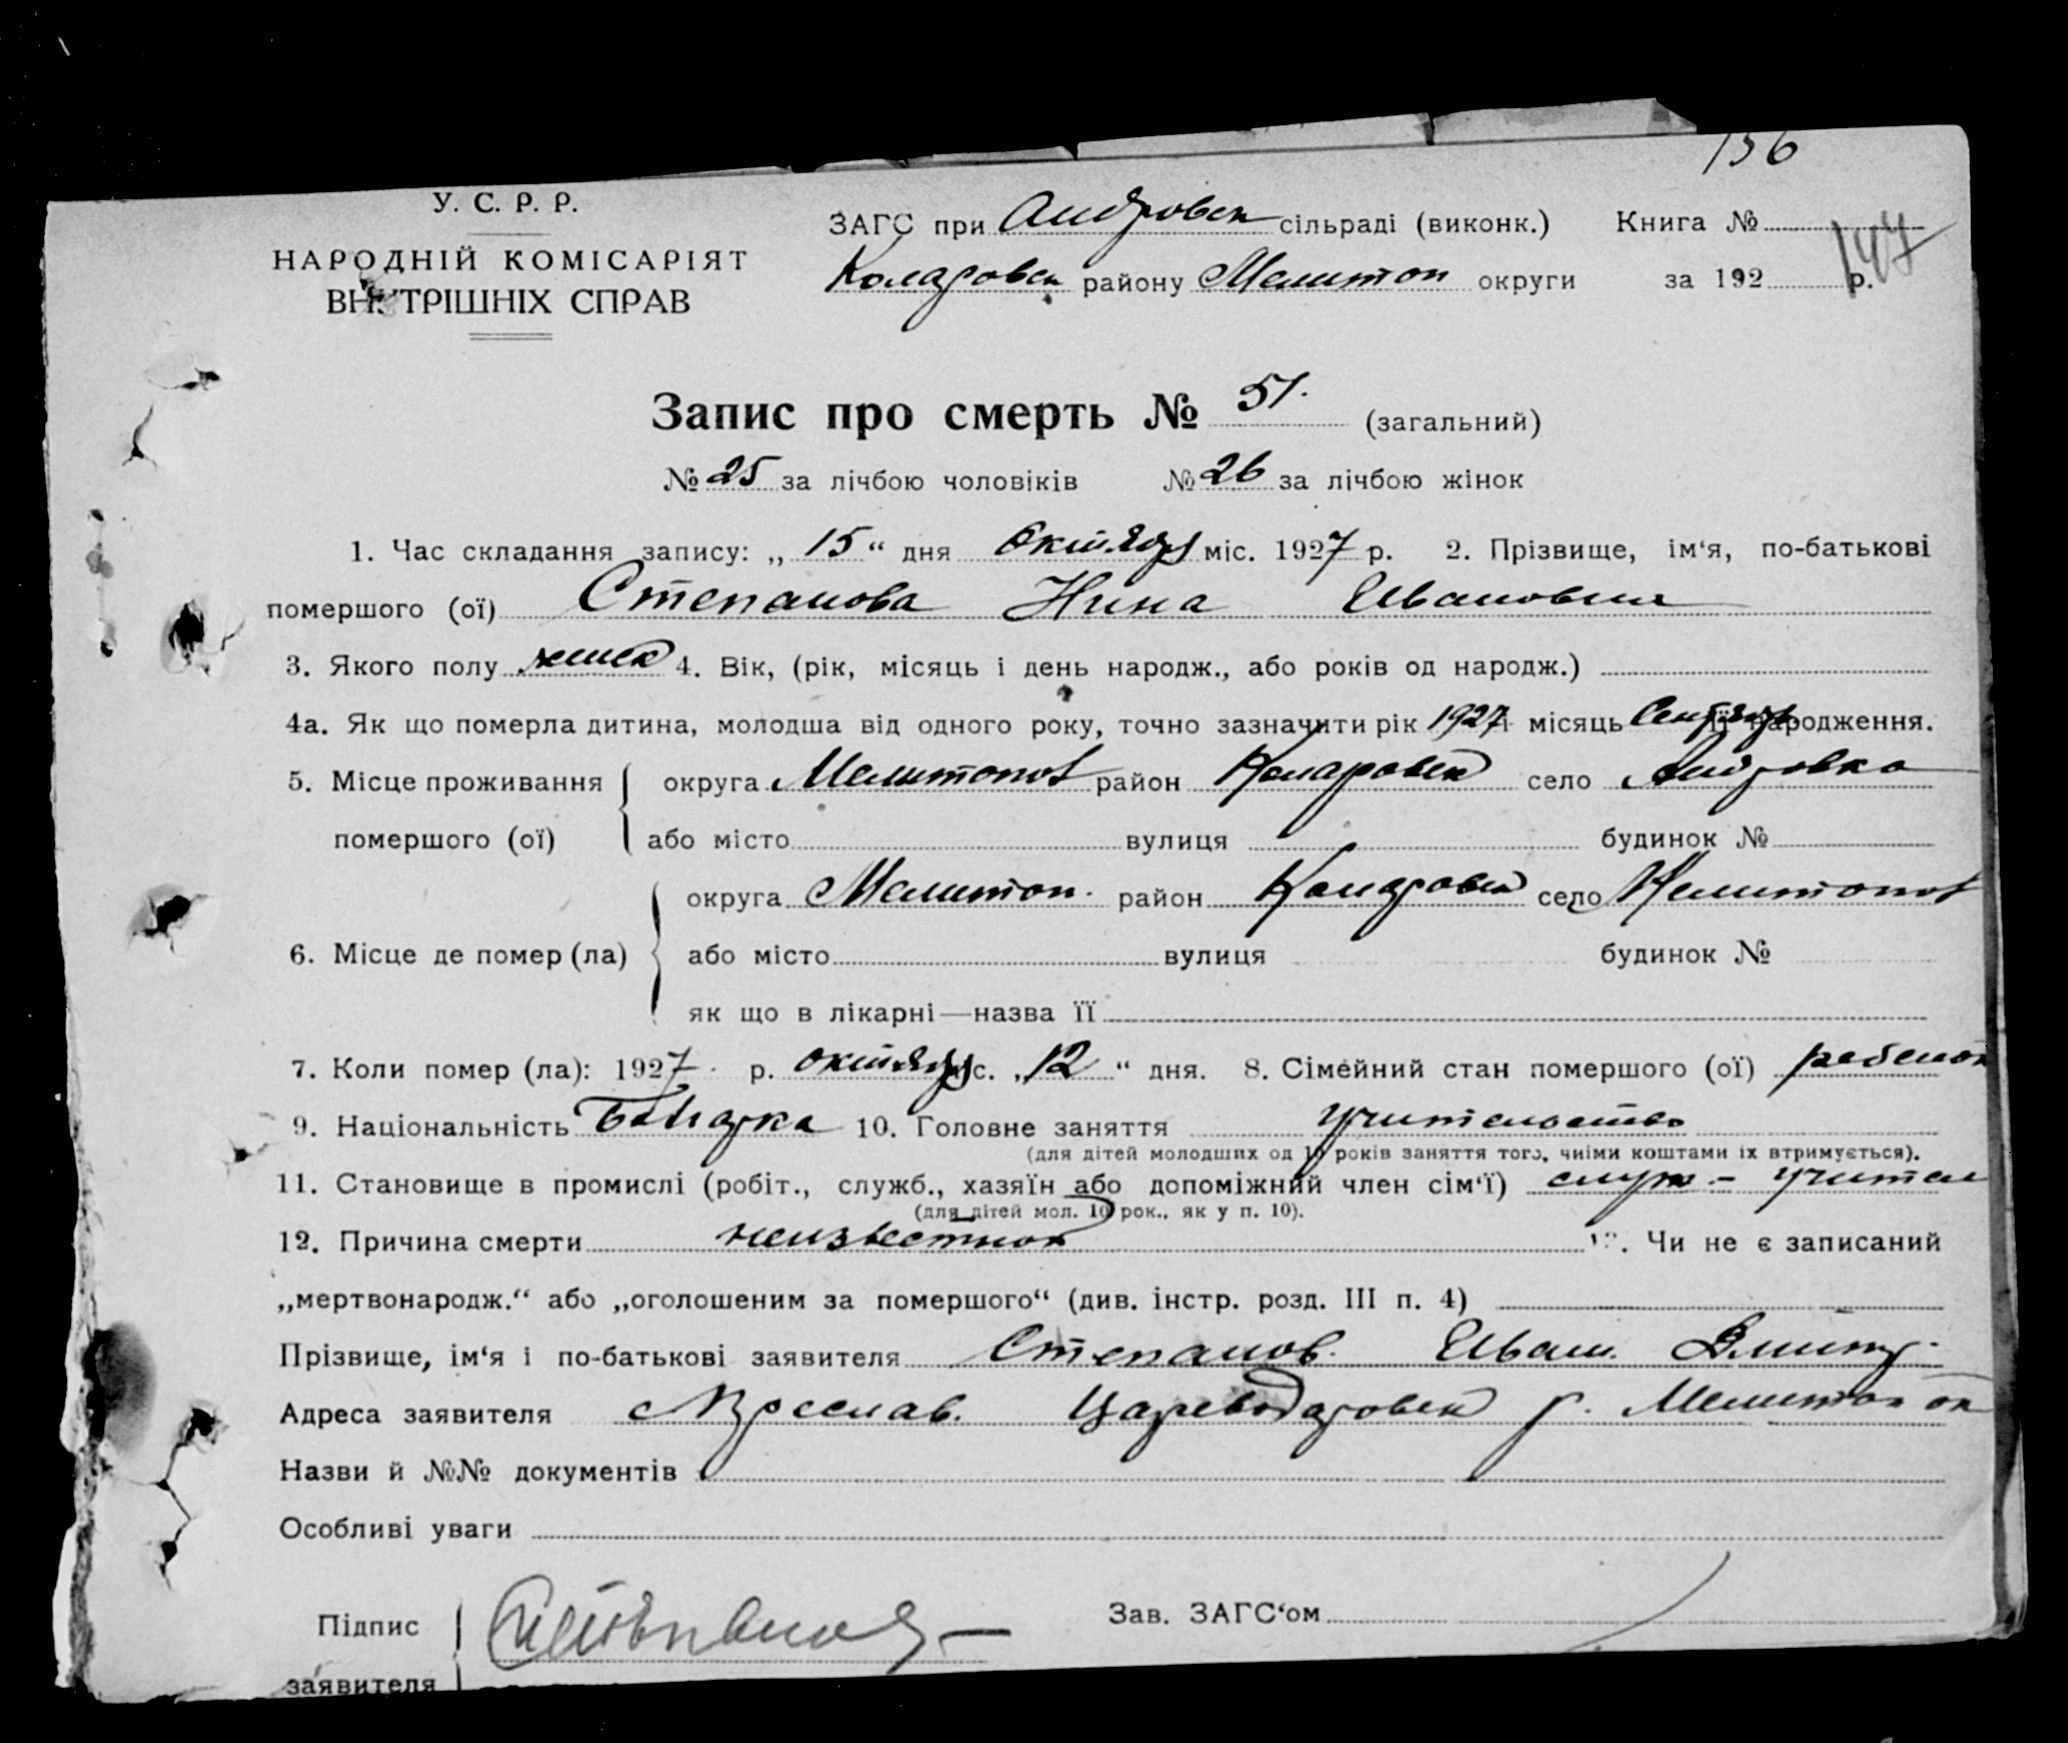 156
У. С. Р. Р.
НАРОДНІЙ КОМІСАРІЯТ
ВНУТРІШНІХ СПРАВ
ЗАГС при Андровск сільраді (виконк.) Книга №
147
Коларовск району Мелитоп округи за 192 р.
Запис про смерть № 51. (загальний)
№ 25 за лічбою чоловіків № 26 за лічбою жінок
1. Час складання запису: „ 15 “ дня Октябр міс. 1927 р. 2. Прізвище, ім‘я, по-батькові
помершого (ої) Степанова Нина Ивановна
3. Якого полу женск 4. Вік, (рік, місяць і день народж., або років од народж.)
4а. Як що померла дитина, молодша від одного року, точно зазначити рік 1927 і місяць Сентябр її народження.
5. Місце проживання помершого (ої) округа Мелитопол район Коларовск село Андровка
або місто вулиця будинок №
6. Місце де помер (ла) округа Мелитоп. район Коларовск село Мелитопол
або місто вулиця будинок №
як що в лікарні—назва її
7. Коли помер (ла): 1927 р. октябр міс. „ 12 “ дня. 8. Сімейний стан помершого (ої) ребенок
9. Національність Болгарка 10. Головне заняття учительство
(для дітей молодших од 10 років заняття того, чиїми коштами їх втримується).
11. Становище в промислі (робіт., служб., хазяїн або допоміжний член сім‘ї) служ. - учител
(для дітей мол. 10 рок., як у п. 10).
12. Причина смерти неизвестной 13. Чи не є записаний
„мертвонародж.“ або „оголошеним за помершого“ (див. інстр. розд. III п. 4)
Прізвище, ім‘я і по-батькові заявителя Степанов. Иван. Дмитр.
Адреса заявителя Цареводаровск р. Мелитоп ок
Назви й №№ документів
Особливі уваги
Підпис
заявителя
Зав. ЗАГС‘ом